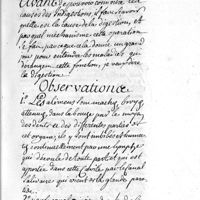 Avant de pouvoir connoitre les
causes des Indigestions, il faut scavoir
quelle est la cause de la digestion, et
par quel mechanisme cette operation
se fait, parceque cela donne un grand
jour pour entendre les maladies qui
derangent cette fonction, je vais decrire
la Digestion.
Observationæ
1.° Les alimens sont machés, broyés
dans la bouche par le moyen
des dents et des differentes parties
cet organe; ils y sont imbibés et humectés
continuellement par une lymphe
qui découle de toute part et qui est
apportée dans cette Cavité par le Canal
salivaire qui vient de la glande paro-
tide.